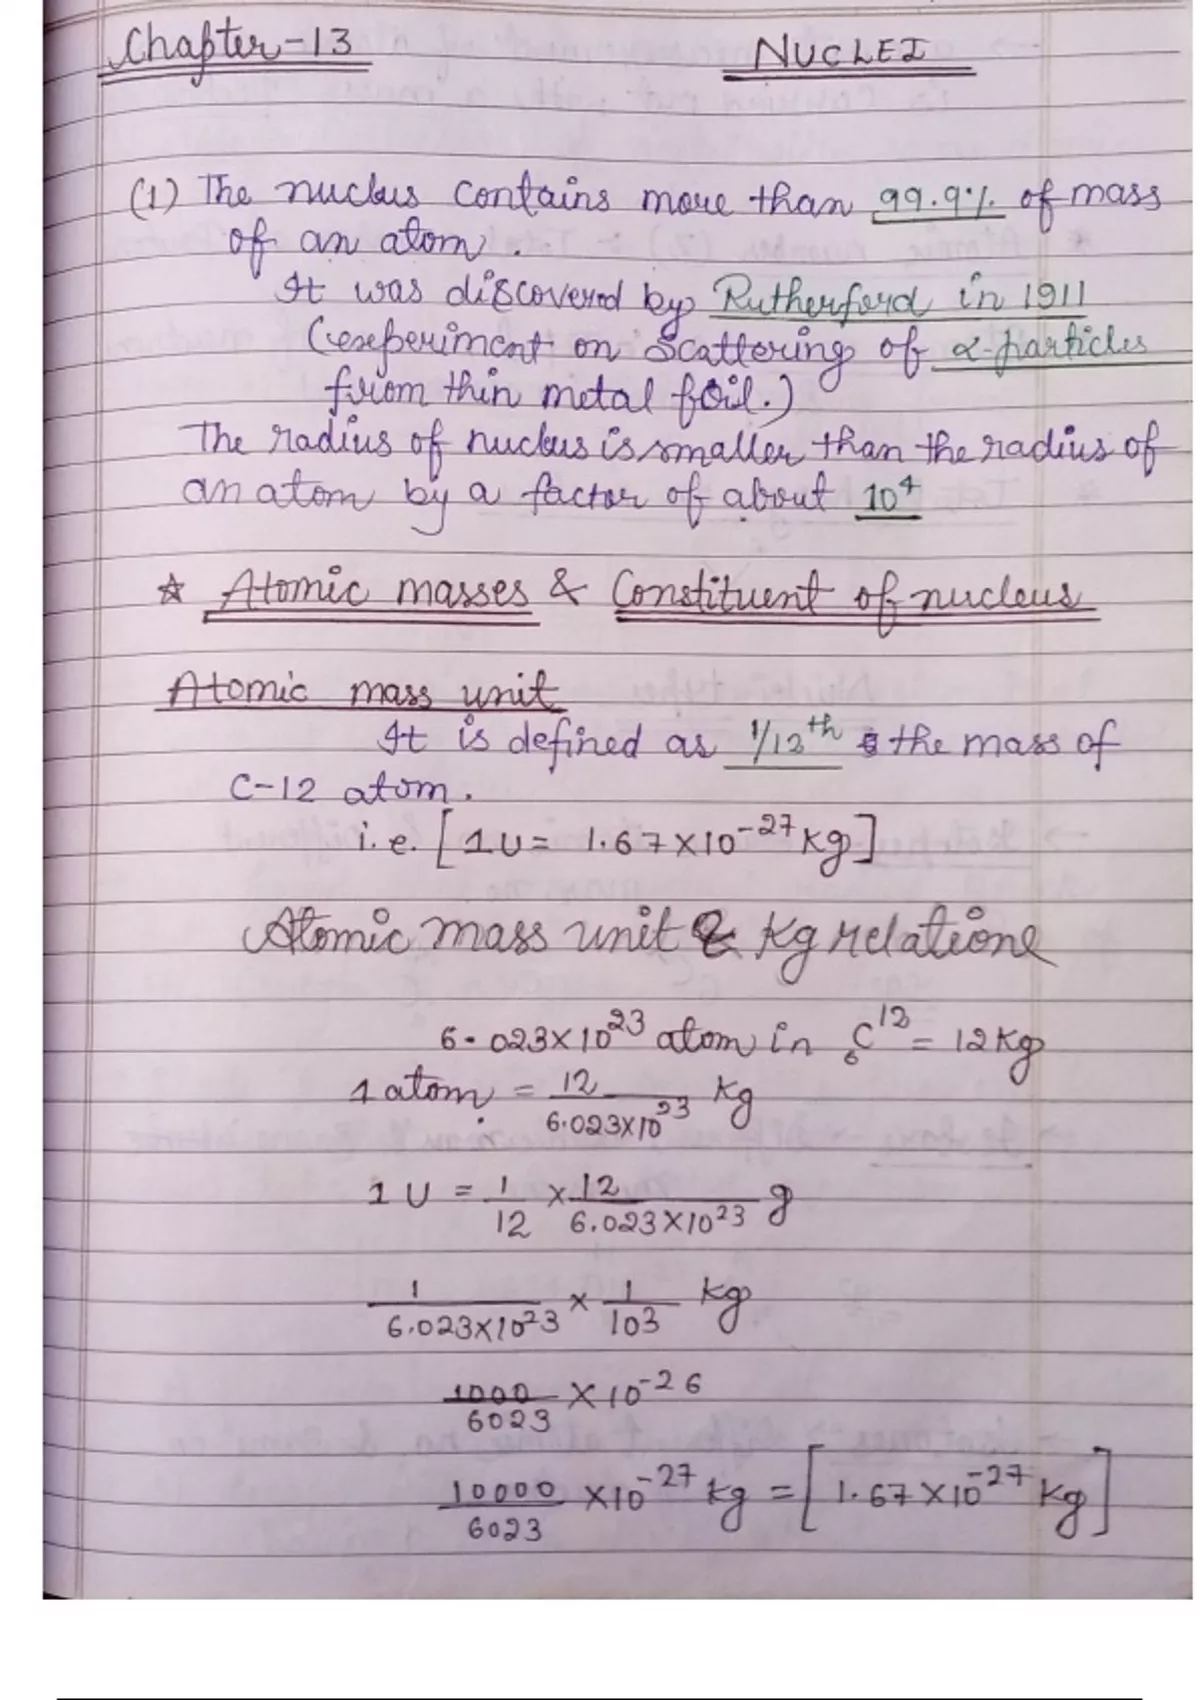 Chapter-13 NUCLEI
(1) The nucleus contains more than 99.9% of mass
of an atom.
It was discovered by Rutherford in 1911
(experiment on scattering of α-particles
from thin metal foil.)
The radius of nucleus is smaller than the radius of
an atom by a factor of about 10⁴
☆ Atomic masses & Constituent of nucleus
Atomic mass unit
It is defined as 1/12th the mass of
C-12 atom.
i.e. [1U = 1.67×10⁻²⁷ kg]
Atomic mass unit & Kg relatione
6.023×10²³ atom in ₆C¹² = 12 Kg
1 atom = 12/6.023×10²³ Kg
1 U = 1/12 × 12/6.023×10²³ g
1/6.023×10²³ × 1/103 kg
1000/6023 × 10⁻²⁶
10000/6023 ×10⁻²⁷ kg = [1.67×10⁻²⁷ Kg]